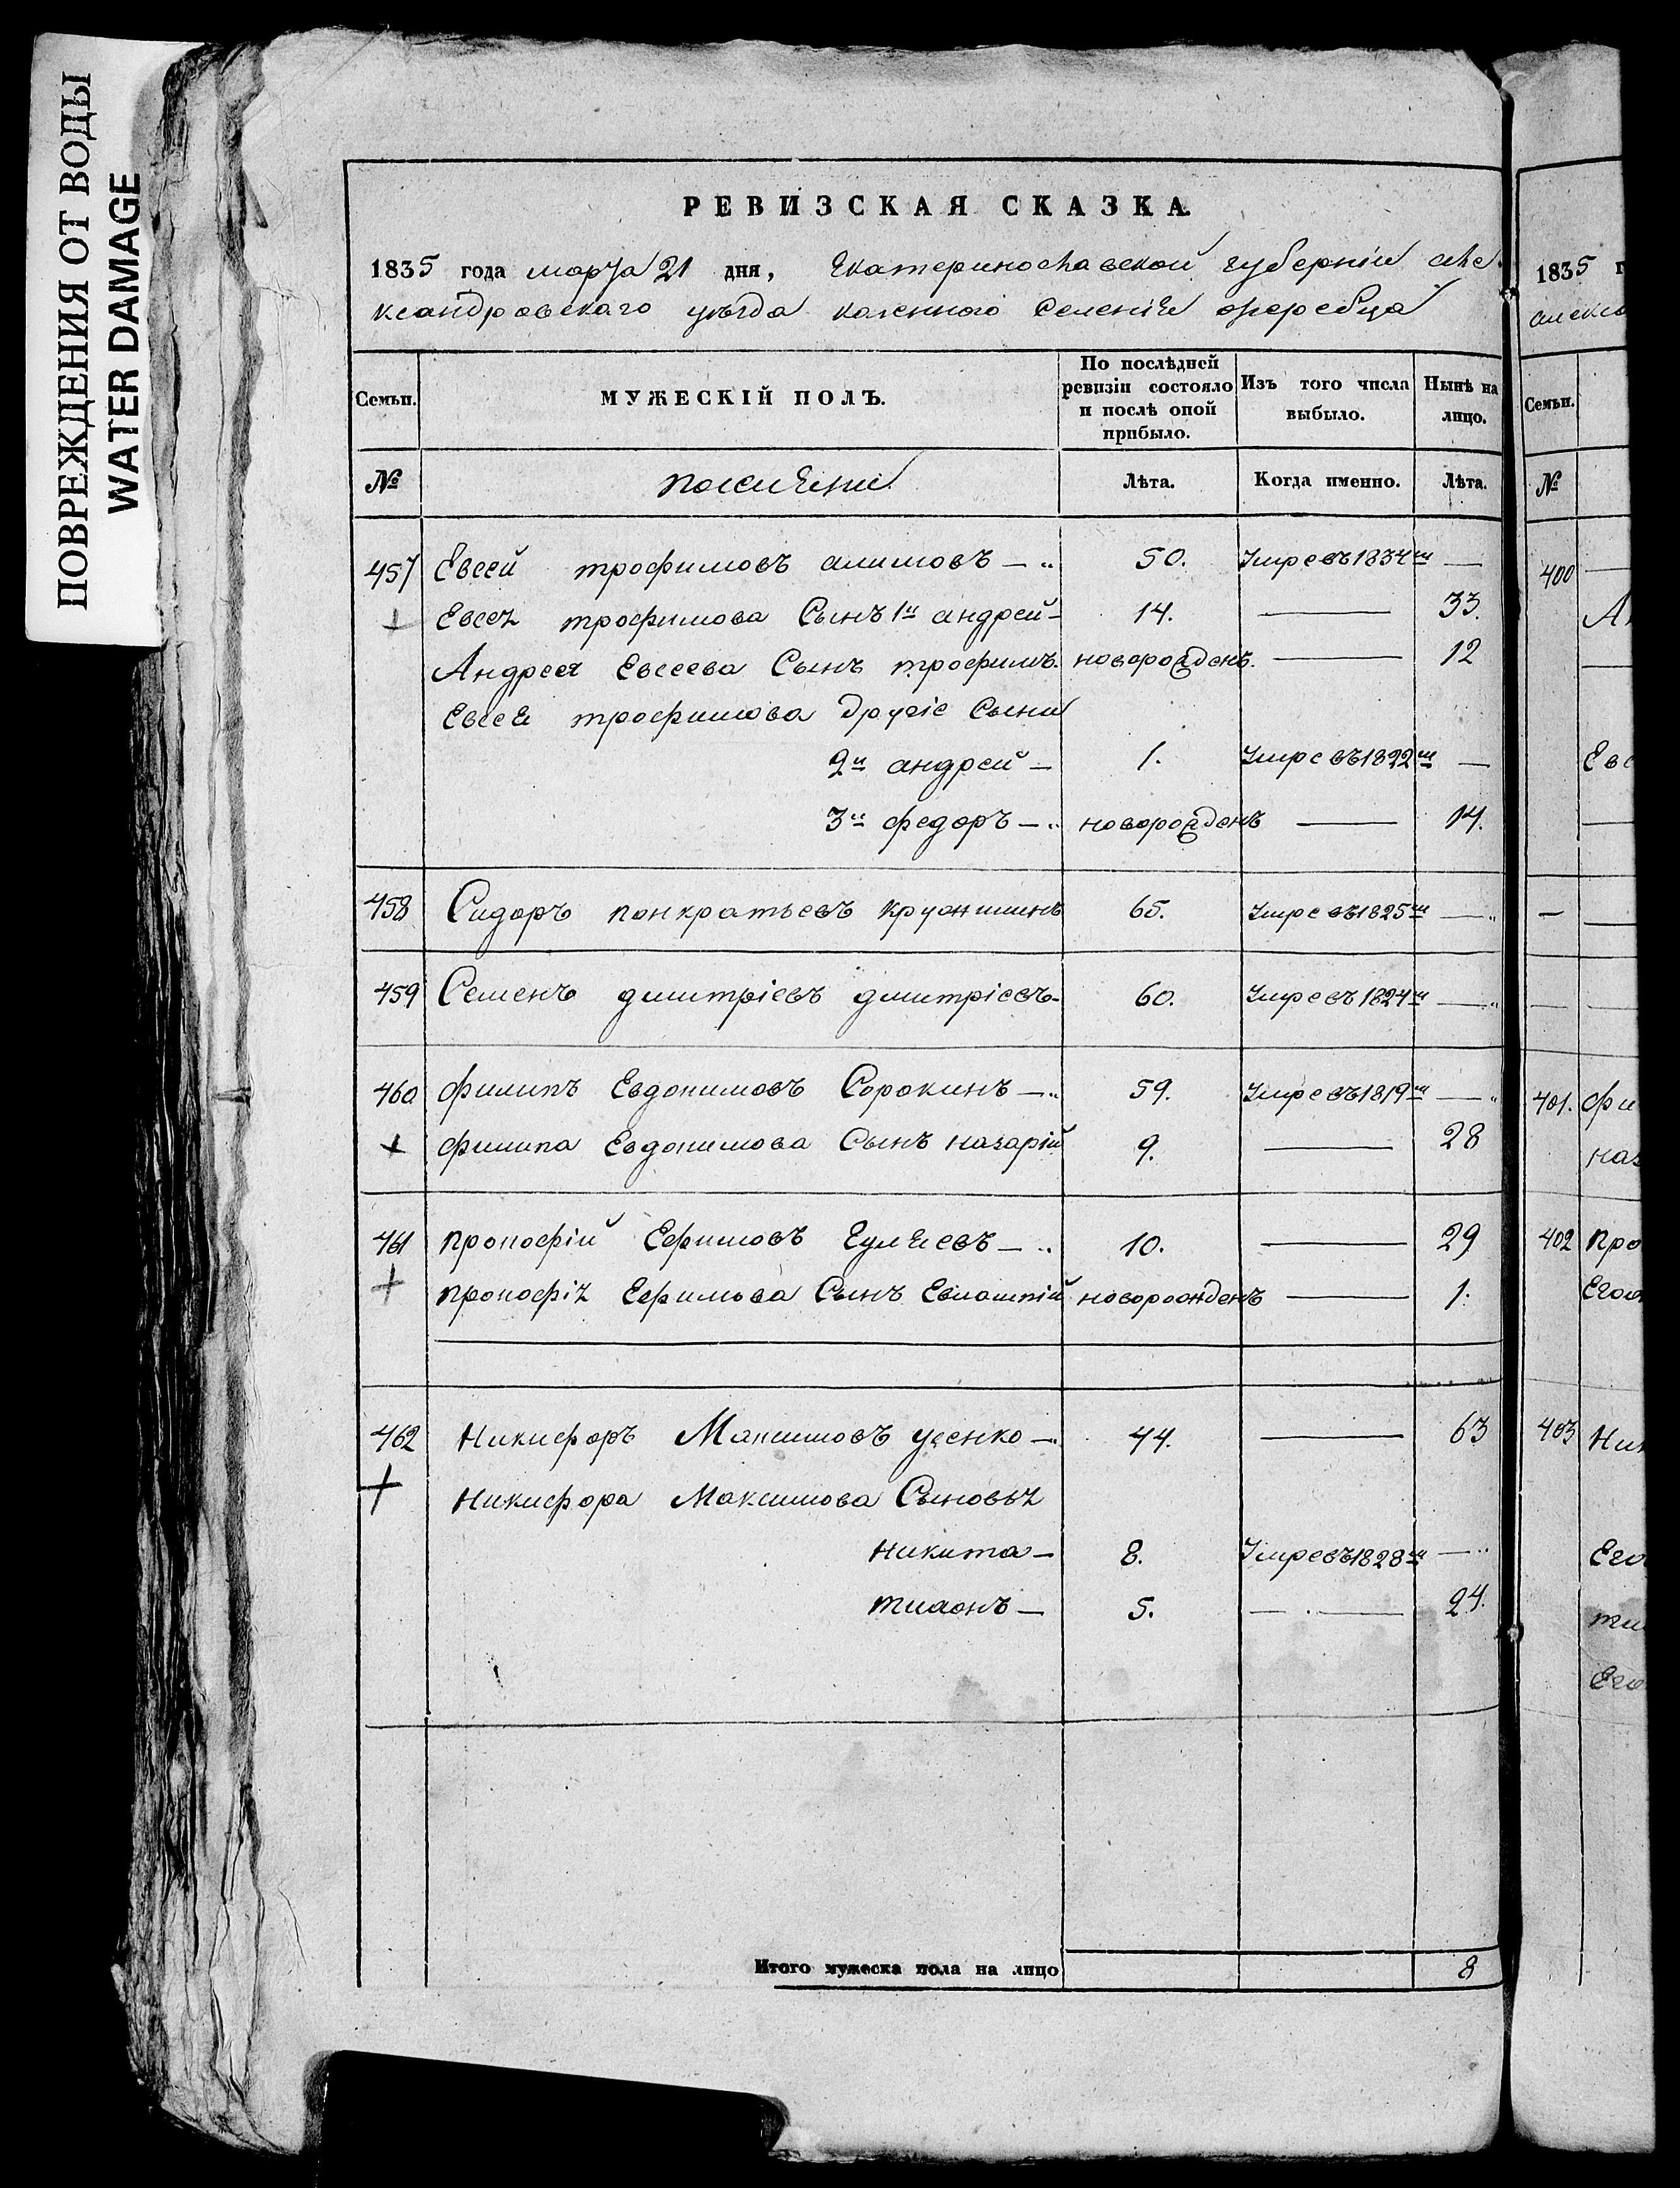 ПОВРЕЖДЕНИЯ ОТ ВОДЫ
WATER DAMAGE
РЕВИЗСКАЯ СКАЗКА.
1835 года марта 21 дня, Екатеринославской губерніи але
ксандровскаго уѣзда казенного селенія жеребца
Семьи. МУЖЕСКІЙ ПОЛЪ. По послѣдней ревизіи состояло и послѣ оной прибыло. Изъ того числа выбыло. Нынѣ на лицо.
№ Лѣта. Когда именно. Лѣта.
457 Евсей трофимовъ алимовъ — 50. Умре въ 1834м —
+ Евсея трофимова Сынъ 1й андрей — 14. — 33.
Андрея Евсеева Сынъ трофимъ. новорожденъ. — 12
Евсея трофимова другіе Сыни
2й андрей — 1. Умре въ 1822м —
3й федоръ — новорожденъ — 14.
458 Сидоръ понкратьевъ 65. Умре въ 1825м —
459 Семенъ дмитріевъ дмитріевъ — 60. Умре въ 1824м —
460 филипъ Евдокимовъ Сорокинъ — 59. Умре въ 1819м —
+ филипа Евдокимова Сынъ назарій 9. — 28
461 прокофій Ефимовъ — 10. — 29
+ прокофія Ефимова Сынъ новорожденъ — 1.
462 Никифоръ Максимовъ усенко — 44. — 63
+ Никифора Максимова Сыновья
никита — 8. Умре въ 1828м —
тихонъ — 5. — 24.
Итого мужеска пола на лицо 8
1835 г
алекса
Семьи.
№
400
Ев
401. Фи
наз
402 Про
Его
403 Ник
Его
ти
Его